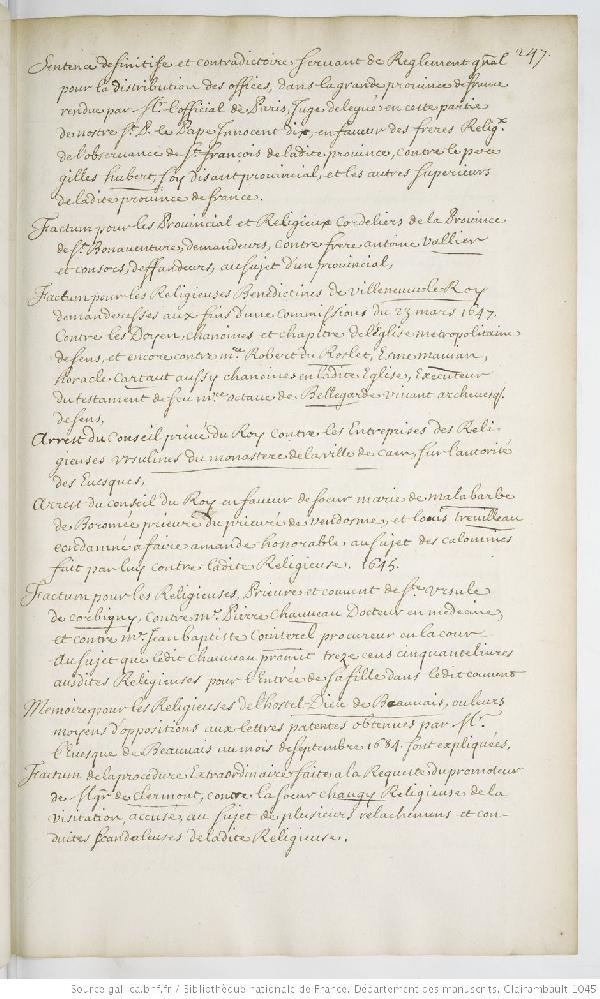 247.
Sentence definitife et contradictoire servant de Reglement gñal
pour la distribution des offices, dans la grande province de france
rendue par Mr. l'official de Paris, Juge delegué en cette partie
de nostre St. P. le Pape Innocent dix, en faveur des freres Relig.x
de l'observance de St. françois de ladite province, contre le pere
gilles hubert, soy disant provincial, et les autres superieurs
de ladite province de france.
Factum pour les Provincial et Religieux Cordeliers de la Province
de St. Bonaventure, demandeurs, contre frere antoine Vallier
et consors, deffandeurs, au sujet d'un provincial,
Factum pour les Religieuses Benedictines de Villeneuve le Roy
demanderesses aux fins d'une Commissions du 23 mars 1647.
Contre les Doyen, chanoines et chapitre de l'Eglise metropolitaine
de sens, et encore contre me. Robert du Roslet, Esme mauian,
horacle Cartaut aussy chanoines en ladite Eglise, Executeur
du testament de feu mre. octave de Bellegarde vivant archevesq.
de sens,
Arrest du Conseil privé du Roy contre les Entreprises des Reli-
gieuses Ursulines du monastere de la ville de Caen, sur l'autorité
des Evesques,
Arrest du Conseil du Roy en faveur de soeur marie de malabarbe
de Boromée prieure du prieuré de vendosme, et louis treuilleau
condamné a faire amande honorable au sujet des calomnies
fait par luy contre ladite Religieuse. 1645.
Factum pour les Religieuses, Prieure et couvent de Ste. Ursule
de Corbigny, contre Mr. Pierre Chauveau Docteur en medecine,
et contre mr. Jean baptiste Cointerel procureur en la cour
au sujet que ledit Chauveau promit treze cens cinquante livres
ausdites Religieuses pour l'Entrée de sa fille dans ledit couvent
Memoire pour les Religieuses de l'hostel-Dieu de Beauvais, ou leurs
moyens d'oppositions aux lettres patentes obtenues par Mr.
l'Evesque de Beauvais au mois de septembre 1684. sont expliquées,
Factum de la procedure Extraordinaire faite a la Requeste du promoteur
de Mgr de Clermont, contre la soeur Chaugy Religieuse de la
visitation, accusé, au sujet de plusieurs relachemens et con-
duites scandaleuses de ladite Religieuse.
Source gallica.bnf.fr / Bibliothèque nationale de France. Département des manuscrits. Clairambault 1045